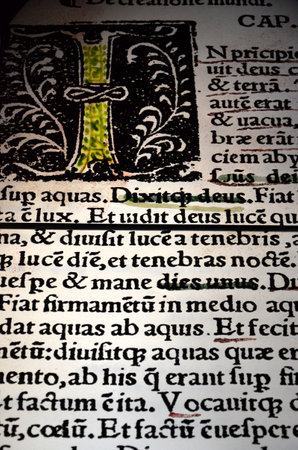 De creatione mundi.
CAP.
IN prīcipio
uit deus c
& terrā.
autē erat
& uacua
bræ erāt
ciem aby
ſ,ūs dei
ſup aquas. Dixitq; deus. Fiat
ta ē lux. Et uidit deus lucē qu
na, & diuiſit lucē a tenebris,
q; lucē diē, et tenebras noctē.
ueſpe & mane dies unus. Di
Fiat firmamētū in medio aqu
dat aquas ab aquis. Et fecit
mētū: diuiſitq; aquas quæ er
mento, ab his q̄ erant ſup fir
et factum ē ita. Vocauitq; d
tū, cœlū. Et factum ē ueſperc